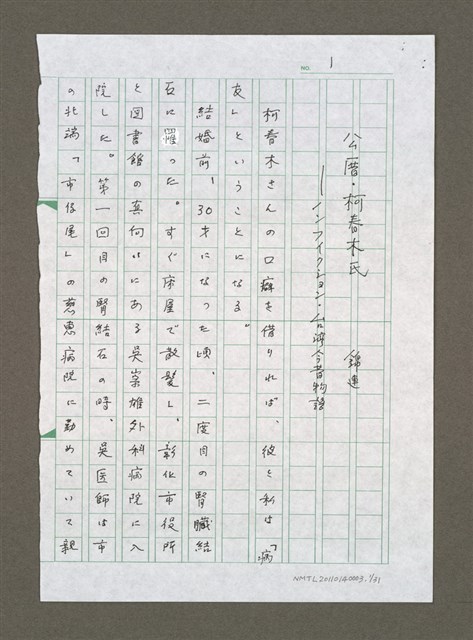 NO. 1
公厝・柯春木氏 錦連
―インフイクション・台湾今昔物語
柯春木さんの口癖を借りれば、彼と私は「病
友」ということになる。
結婚前、30才になった頃、二度目の腎臓結
石に罹った。すぐ床屋で散髪し、彰化市役所
と図書館の真向いにある呉崇雄外科病院に入
院した。第一回目の腎結石の時、呉医師は市
の北端「市仔尾」の慈恵病院に勤めていて親
NMTL20110140003.1/31